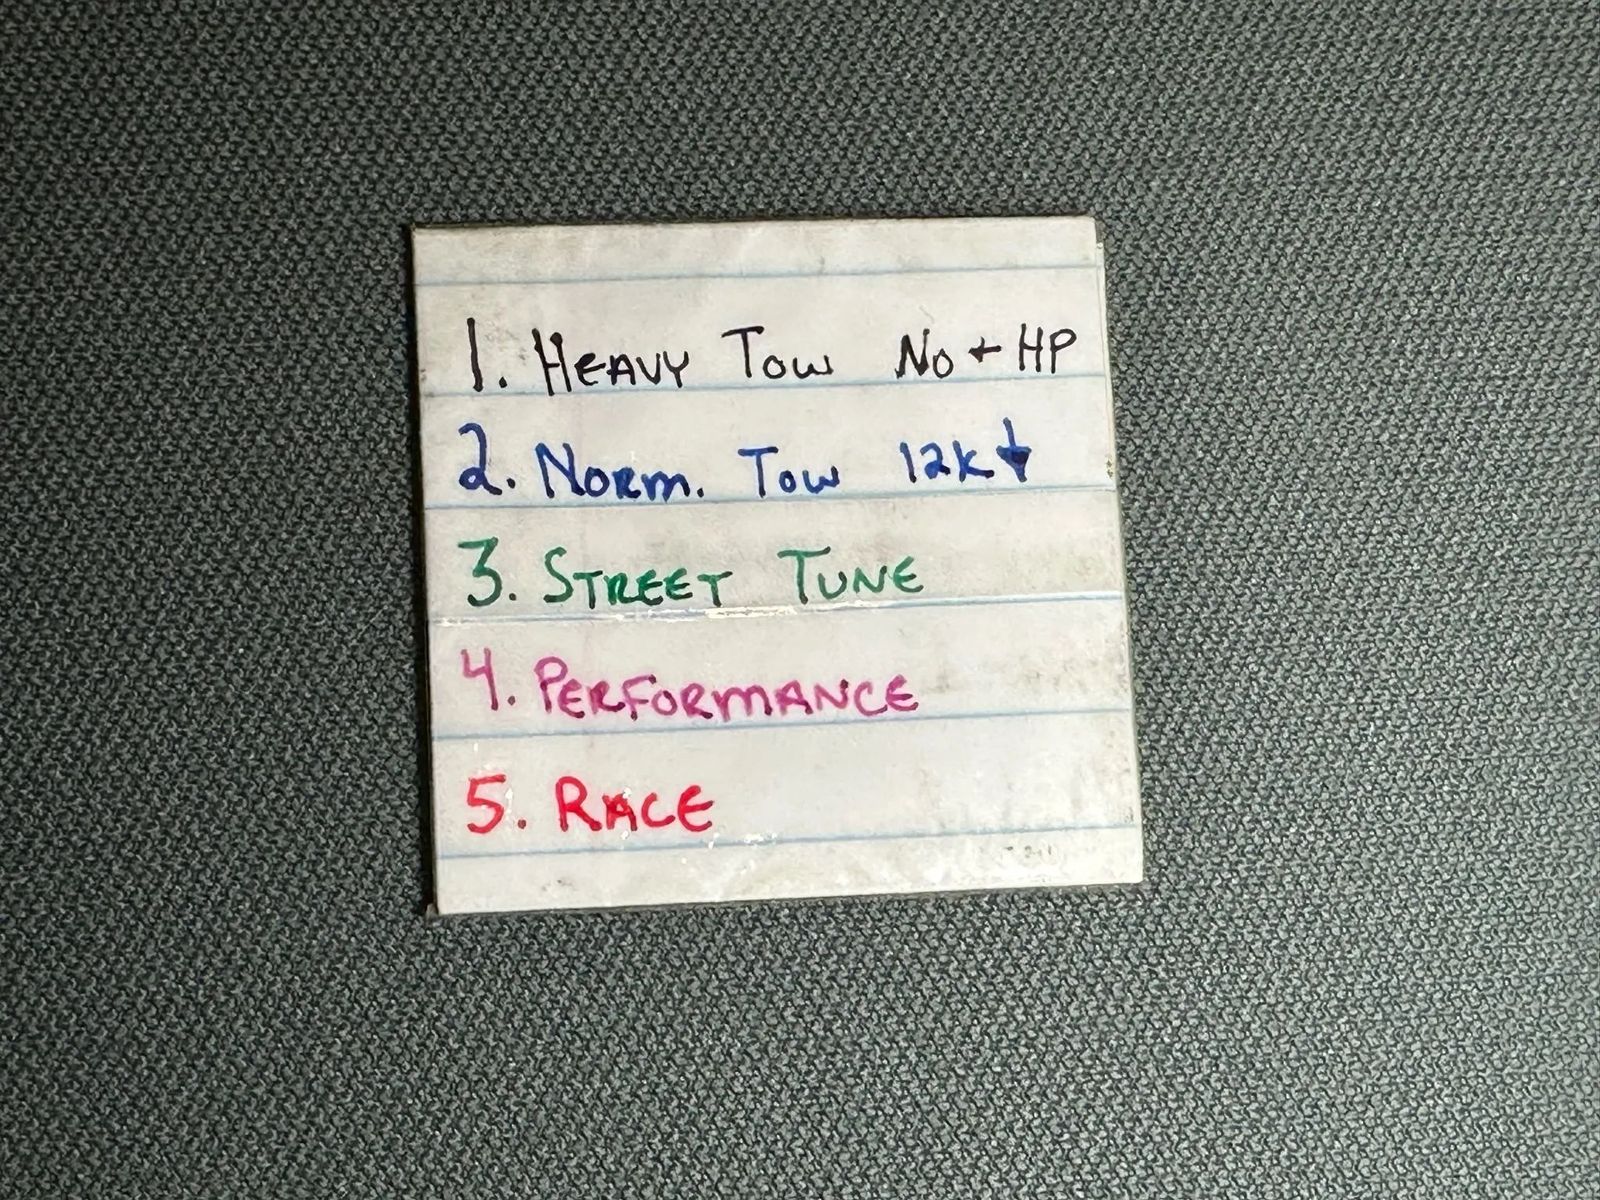 1. HEAVY TOW NO + HP
2. NORM. TOW 12K ↓
3. STREET TUNE
4. PERFORMANCE
5. RACE